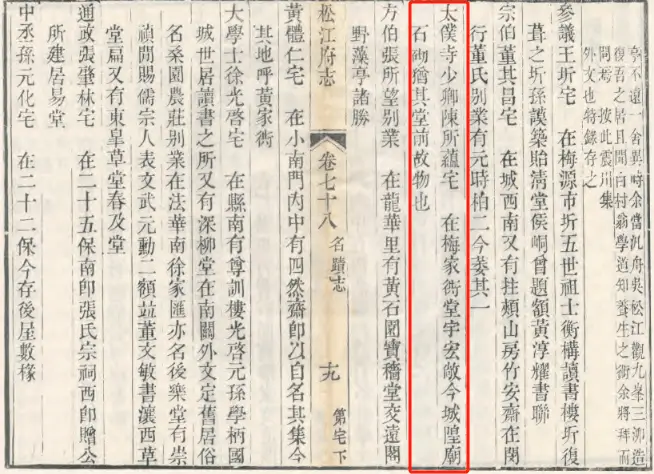 亭不遠一舍異時余當汎舟吳松江觀九峯三泖造
復吾之居且聞白村翁學道知養生之術余將拜而
問焉 按此震川集
外文也特錄存之
參議王圻宅 在梅源市圻五世祖士衡構讀書樓圻復
葺之圻孫護築貽清堂侯峒曾題額黃淳耀書聯
宗伯董其昌宅 在城西南又有拄頰山房竹安齋在閔
行董氏別業有元時柏二今萎其一
太僕寺少卿陳所蘊宅 在梅家衖堂宇宏敞今城隍廟
石砌猶其堂前故物也
方伯張所望別業 在龍華里有黃石園寶穡堂交遠閣
野藻亭諸勝
松江府志 卷七十八 名蹟志 十九 第宅下
黃體仁宅 在小南門內中有四然齋卽以自名其集今
其地呼黃家衖
大學士徐光啓宅 在縣南有尊訓樓光啓元孫學柄國
城世居讀書之所又有深柳堂在南關外文定舊居俗
名桑園農莊別業在法華南徐家匯亦名後樂堂有崇
禎間賜儒宗人表文武元勳二額竝董文敏書瀼西草
堂扁又有東臯草堂春及堂
通政張肇林宅 在二十五保南卽張氏宗祠西卽贈公
所建居易堂
中丞孫元化宅 在二十二保今存後屋數椽